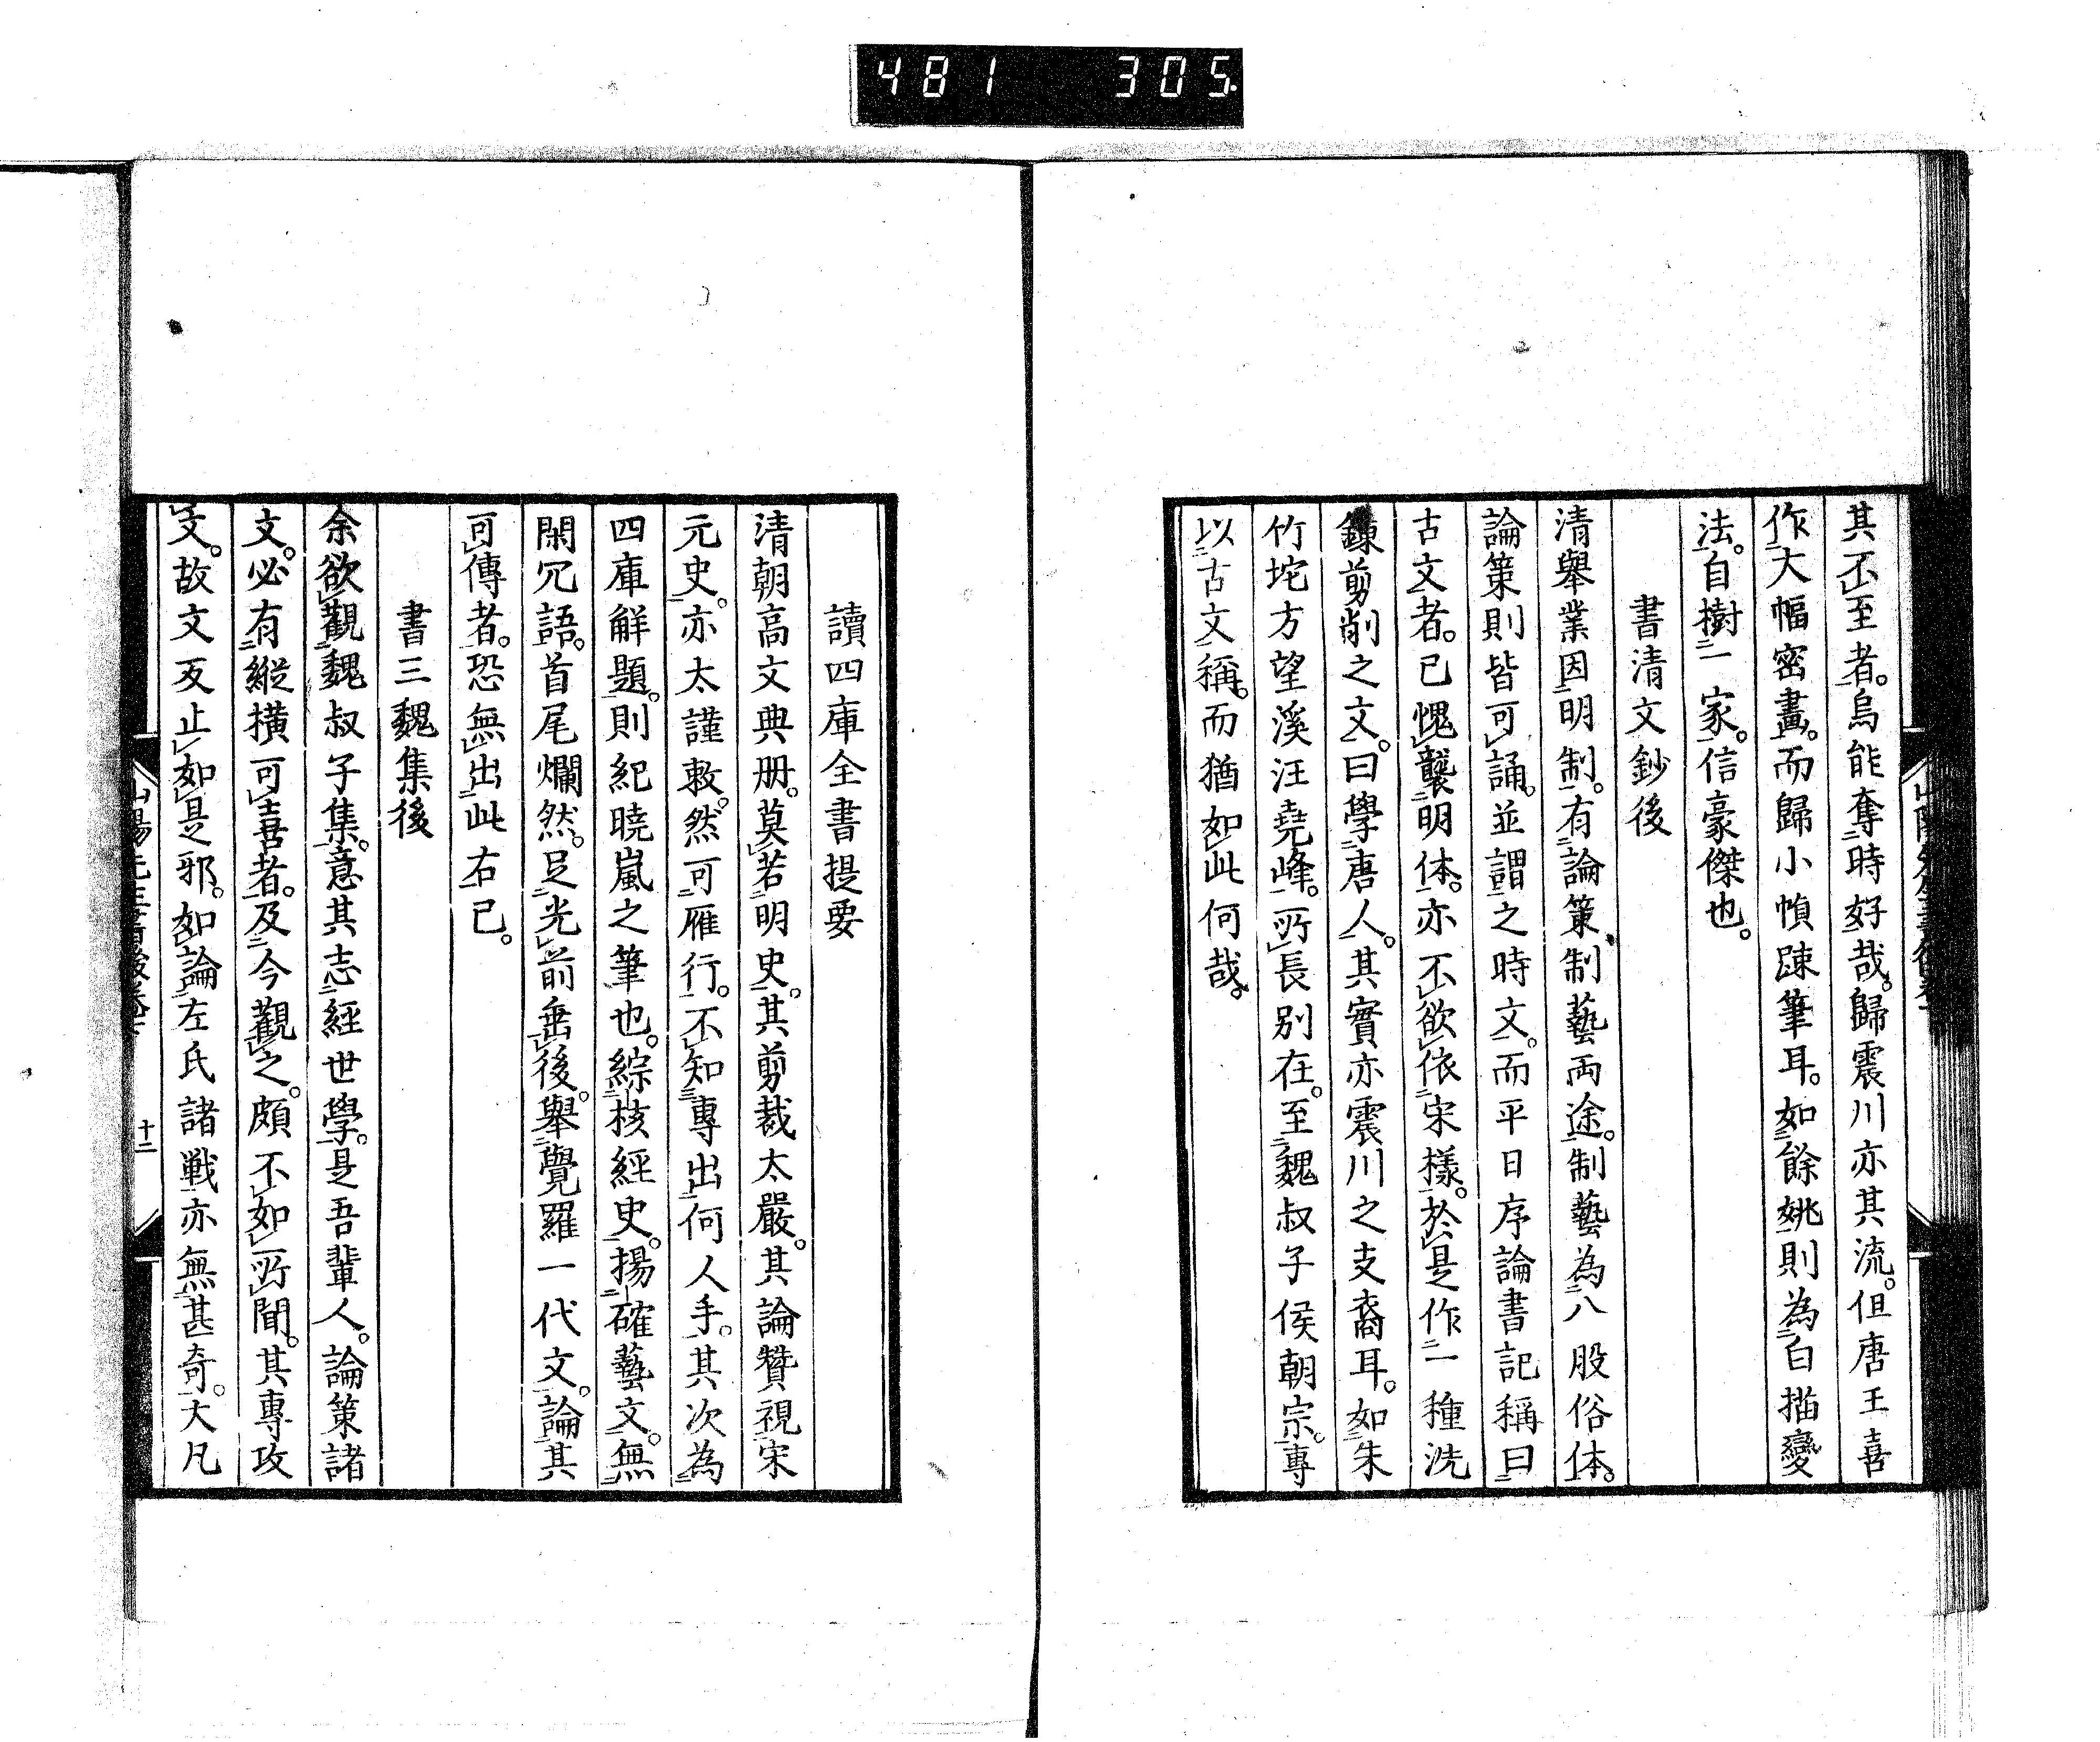 481 305
其不至者。烏能奪時好哉。歸震川亦其流。但唐王喜
作大幅密畫。而歸小幀踈筆耳。如餘姚則為白描變
法。自樹一家。信豪傑也。
書清文鈔後
清舉業因明制。有論策制藝両途。制藝為八股俗体。
論策則皆可誦。並謂之時文。而平日序論書記稱曰
古文者。已愧襲明体。亦不欲依宋樣。於是作一種洗
鍊剪削之文。曰學唐人。其實亦震川之支裔耳。如朱
竹垞方望溪汪堯峰。所長別在。至魏叔子侯朝宗。專
以古文稱。而猶如此何哉。
讀四庫全書提要
清朝高文典册。莫若明史。其剪裁太嚴。其論贊視宋
元史。亦太謹敕。然可雁行。不知專出何人手。其次為
四庫解題。則紀曉嵐之筆也。綜核經史。揚確藝文。無
閑冗語。首尾爛然。足光前垂後。舉覺羅一代文。論其
可傳者。恐無出此右已。
書三魏集後
余欲觀魏叔子集。意其志經世學。是吾輩人。論策諸
文。必有縱橫可喜者。及今觀之。頗不如所聞。其專攻
文。故文反止如是邪。如論左氏諸戦亦無甚奇。大凡
十二